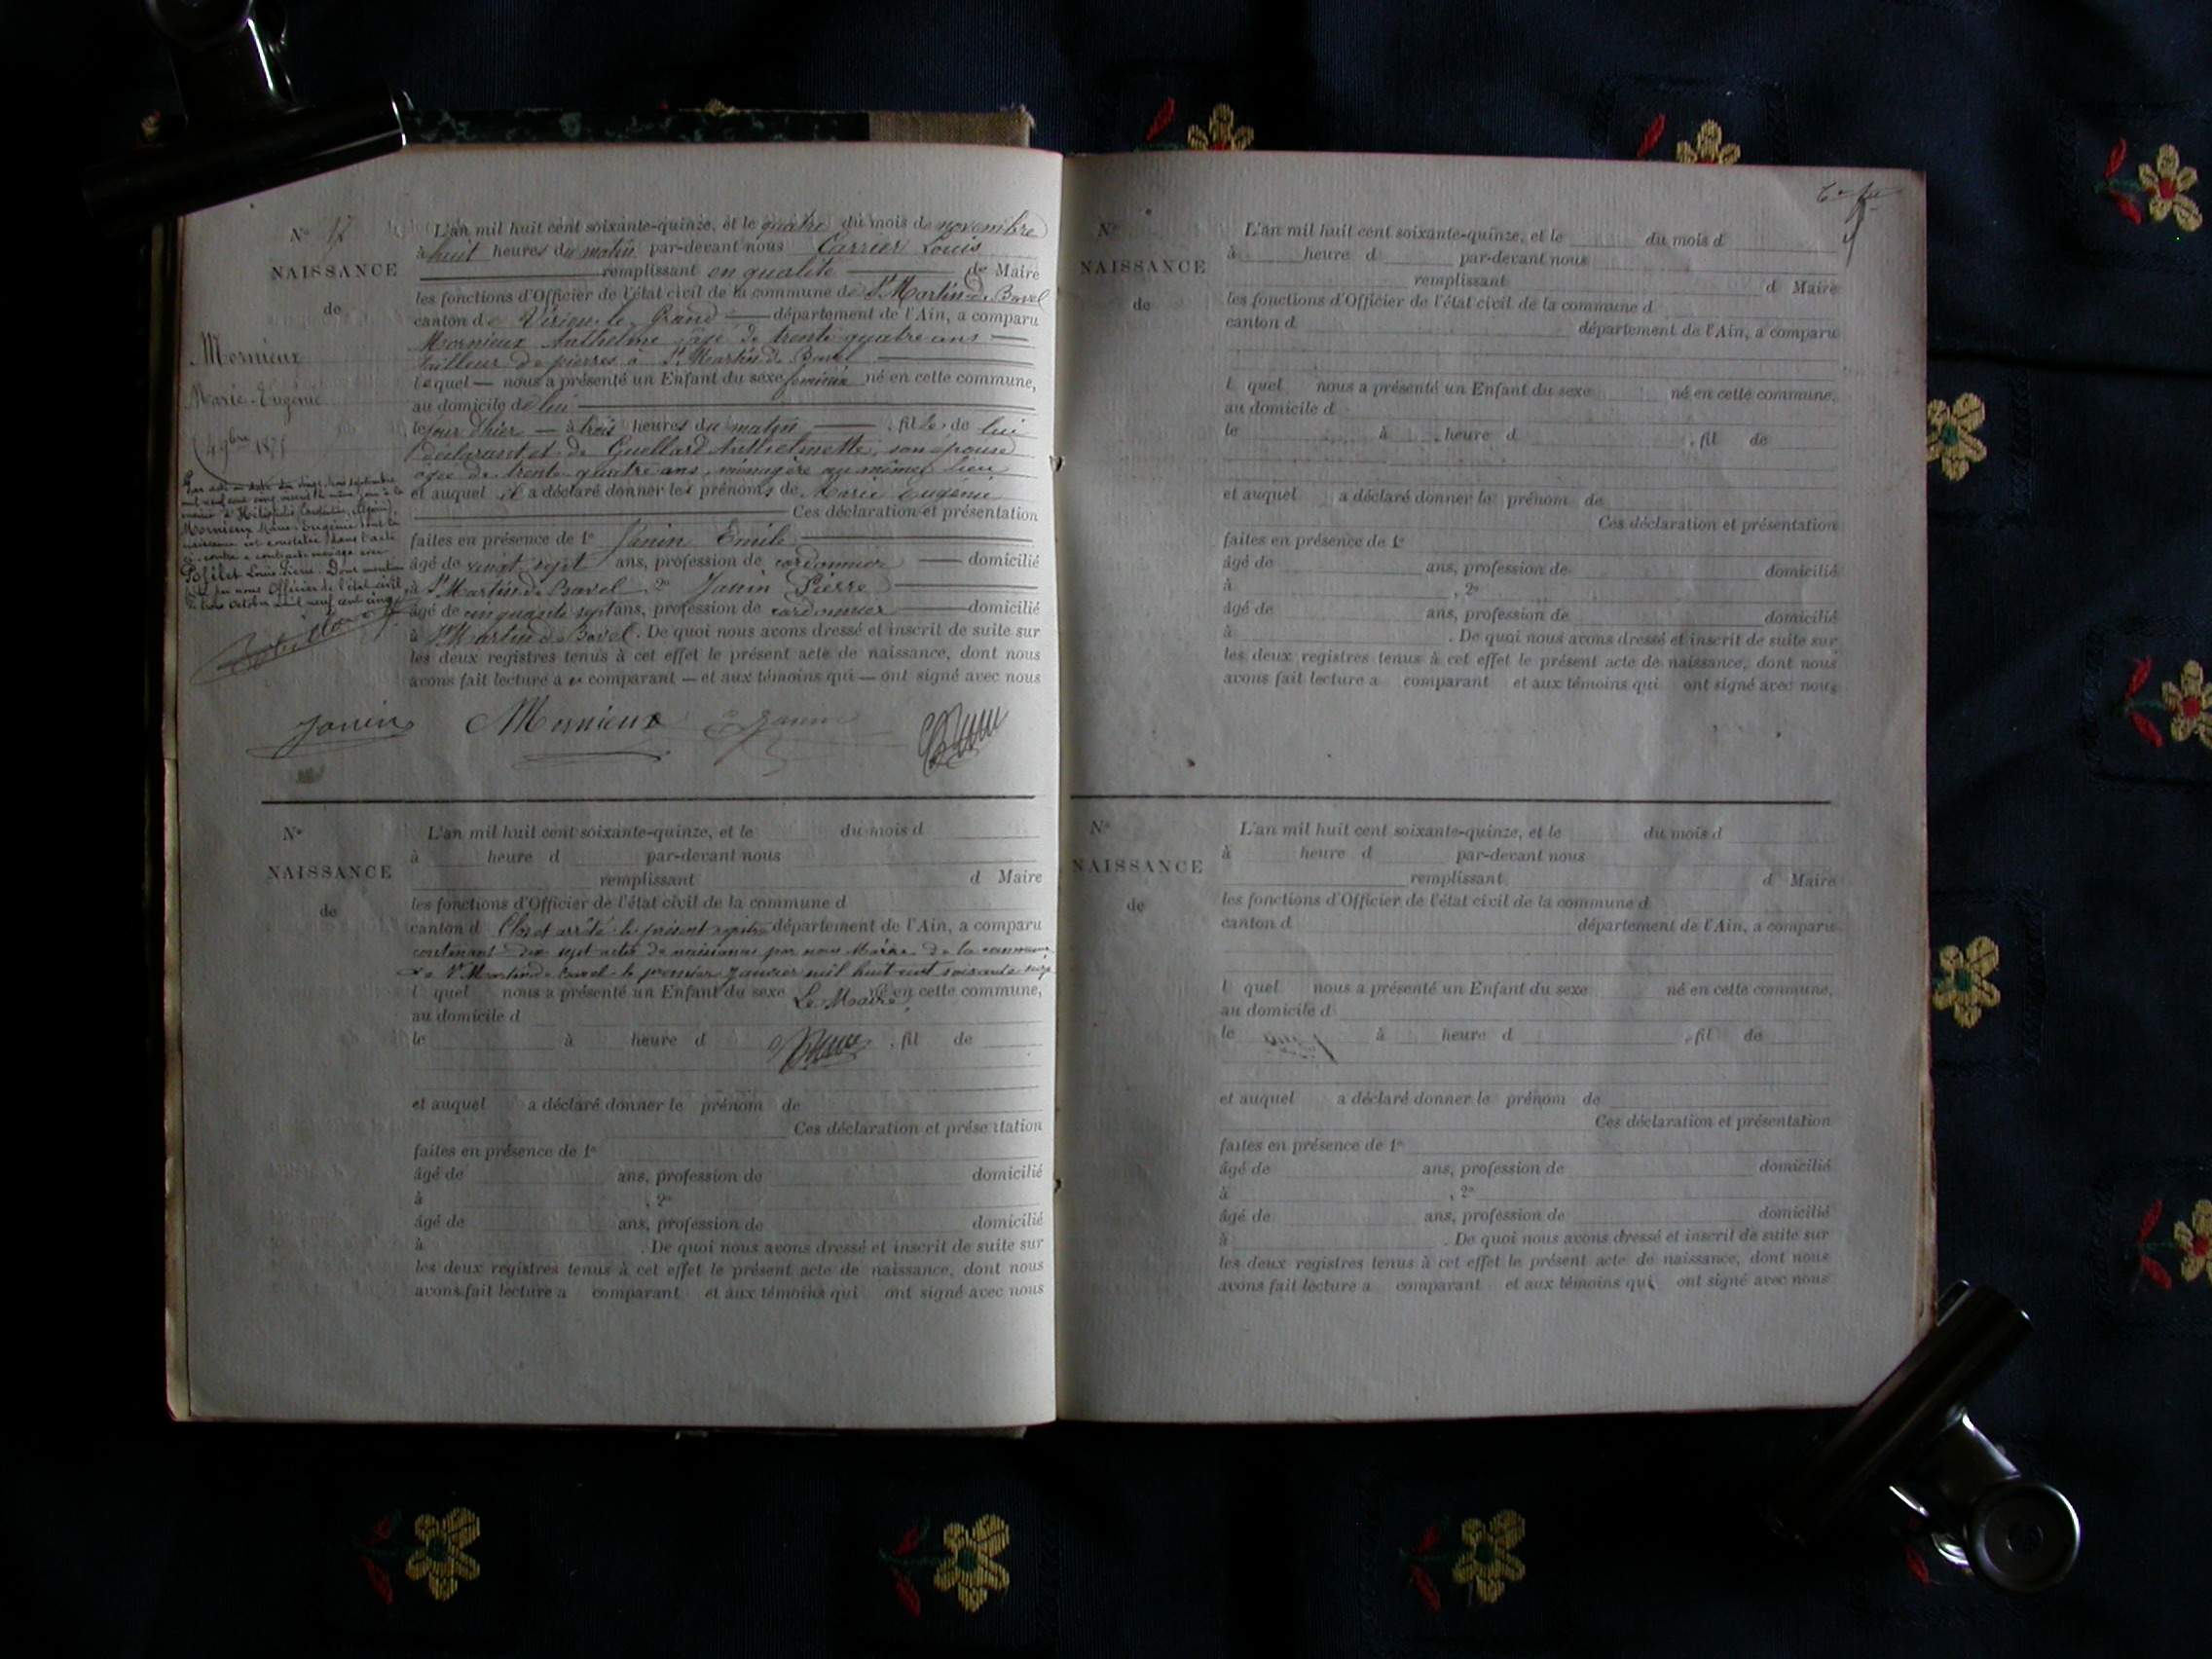 N° 17
NAISSANCE
de
Mornieux
Marie-Eugénie
4 9bre 1875
Par acte en date du vingt trois septembre
mil neuf cent cinq
mairie d'Héliopolis
Mornieux Marie Eugénie dont la
naissance est constatée dans l'acte
ci-contre a contracté mariage avec
Louis Pierre. Dont mention
faite par nous Officier de l'état civil
le trois octobre mil neuf cent cinq
L'an mil huit cent soixante-quinze, et le quatre du mois de novembre
à huit heures du matin par-devant nous Carrier Louis
remplissant en qualité de Maire
les fonctions d'Officier de l'état civil de la commune de St Martin de Bavel
canton de Virieu-le-Grand département de l'Ain, a comparu
Mornieux Anthelme âgé de trente quatre ans
tailleur de pierres à St Martin de Bavel
lequel nous a présenté un Enfant du sexe féminin né en cette commune,
au domicile de lui
le jour d'hier à trois heures du matin, fille de lui
déclarant et de Guellard Anthelmette, son épouse
âgée de trente quatre ans, ménagère au même lieu
et auquel il a déclaré donner les prénoms de Marie Eugénie
Ces déclaration et présentation
faites en présence de 1° Janin Emile
âgé de vingt sept ans, profession de cordonnier domicilié
à St Martin de Bavel 2° Janin Pierre
âgé de cinquante sept ans, profession de cordonnier domicilié
à St Martin de Bavel. De quoi nous avons dressé et inscrit de suite sur
les deux registres tenus à cet effet le présent acte de naissance, dont nous
avons fait lecture a comparant et aux témoins qui ont signé avec nous
Janin Mornieux E Janin
N°
NAISSANCE
de
L'an mil huit cent soixante-quinze, et le du mois d
à heure d par-devant nous
remplissant d Maire
les fonctions d'Officier de l'état civil de la commune d
canton d Clos et arrêté le présent registre département de l'Ain, a comparu
contenant dix sept actes de naissances par nous Maire de la commune
de St Martin de Bavel le premier Janvier mil huit cent soixante seize
l quel nous a présenté un Enfant du sexe né en cette commune,
Le Maire,
au domicile d
le à heure d , fil de
et auquel a déclaré donner le prénom de
Ces déclaration et présentation
faites en présence de 1°
âgé de ans, profession de domicilié
à , 2°
âgé de ans, profession de domicilié
à . De quoi nous avons dressé et inscrit de suite sur
les deux registres tenus à cet effet le présent acte de naissance, dont nous
avons fait lecture a comparant et aux témoins qui ont signé avec nous
N°
NAISSANCE
de
L'an mil huit cent soixante-quinze, et le du mois d
à heure d par-devant nous
remplissant d Maire
les fonctions d'Officier de l'état civil de la commune d
canton d département de l'Ain, a comparu
l quel nous a présenté un Enfant du sexe né en cette commune,
au domicile d
le à heure d , fil de
et auquel a déclaré donner le prénom de
Ces déclaration et présentation
faites en présence de 1°
âgé de ans, profession de domicilié
à , 2°
âgé de ans, profession de domicilié
à . De quoi nous avons dressé et inscrit de suite sur
les deux registres tenus à cet effet le présent acte de naissance, dont nous
avons fait lecture a comparant et aux témoins qui ont signé avec nous
N°
NAISSANCE
de
L'an mil huit cent soixante-quinze, et le du mois d
à heure d par-devant nous
remplissant d Maire
les fonctions d'Officier de l'état civil de la commune d
canton d département de l'Ain, a comparu
l quel nous a présenté un Enfant du sexe né en cette commune,
au domicile d
le à heure d , fil de
et auquel a déclaré donner le prénom de
Ces déclaration et présentation
faites en présence de 1°
âgé de ans, profession de domicilié
à , 2°
âgé de ans, profession de domicilié
à . De quoi nous avons dressé et inscrit de suite sur
les deux registres tenus à cet effet le présent acte de naissance, dont nous
avons fait lecture a comparant et aux témoins qui ont signé avec nous